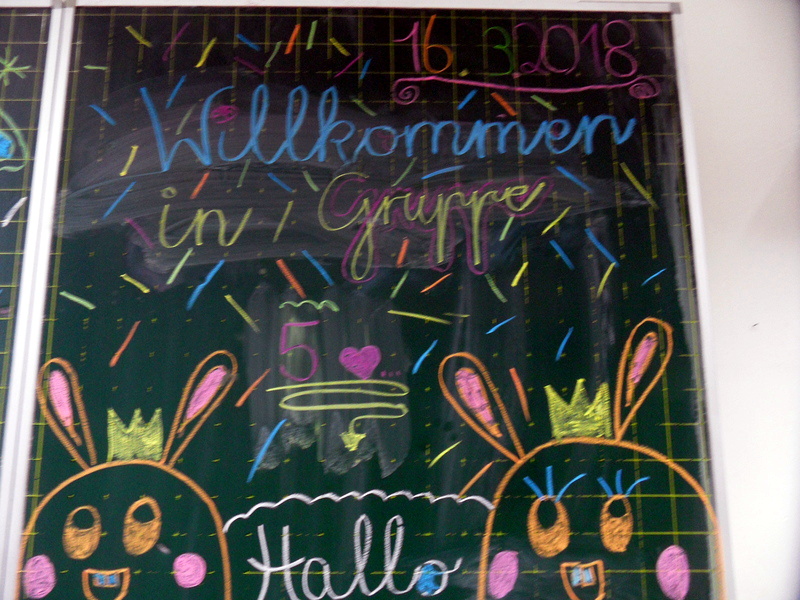 16.3.2018
Willkommen
in Gruppe
5 ♥...
Hallo